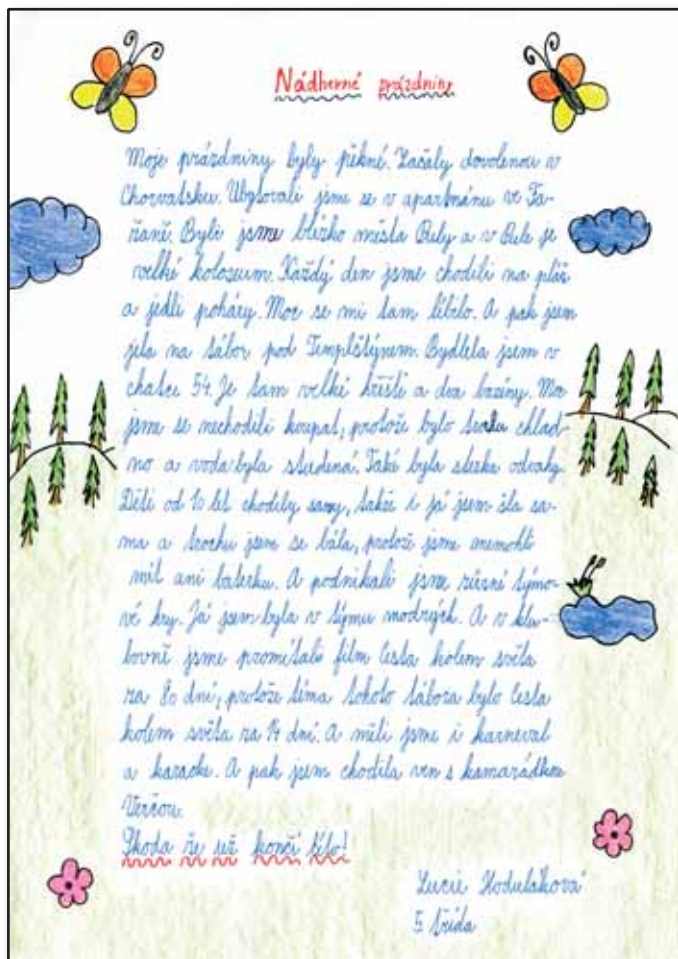 Nádherné prázdniny
Moje prázdniny byly pěkné. Začaly dovolenou v
Chorvatsku. Ubytovali jsme se v apartmánu ve Fa-
žaně. Byli jsme blízko města Puly a v Pule je
velké koloseum. Každý den jsme chodili na pláž
a jedli poháry. Moc se mi tam líbilo. A pak jsem
jela na tábor pod Templštýnem. Bydlela jsem v
chatce 54. Je tam velké hřiště a dva bazény. Moc
jsme se nechodili koupat, protože bylo trochu chlad-
no a voda byla studená. Také byla stezka odvahy.
Děti od 10 let chodily samy, takže i já jsem šla sa-
ma a trochu jsem se bála, protože jsme nemohli
mít ani baterku. A podnikali jsme různé týmo-
vé hry. Já jsem byla v týmu modrých. A v klu-
bovně jsme promítali film Cesta kolem světa
za 80 dní, protože téma tohoto tábora bylo Cesta
kolem světa za 14 dní. A měli jsme i karneval
a karaoke. A pak jsem chodila ven s kamarádkou
Verčou.
Škoda že už končí léto!
Lucie Hodulákova
5. třída